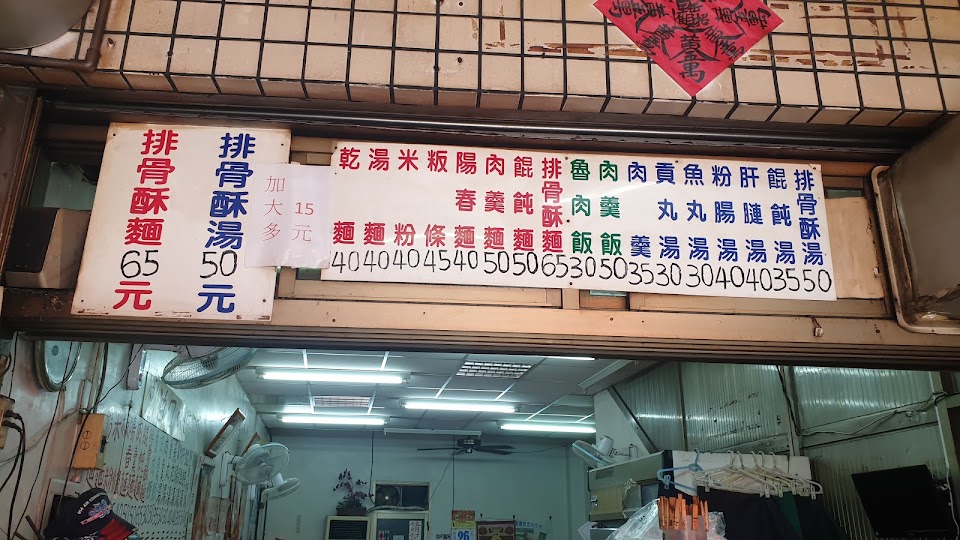 排骨酥麵65元
排骨酥湯50元
加大多
15元
乾麵40
湯麵40
米粉40
粄條45
陽春麵40
肉羹麵50
餛飩麵50
排骨酥麵65
魯肉飯30
肉羹飯50
肉羹35
貢丸湯30
魚丸湯30
粉腸湯40
肝嗹湯40
餛飩湯35
排骨酥湯50